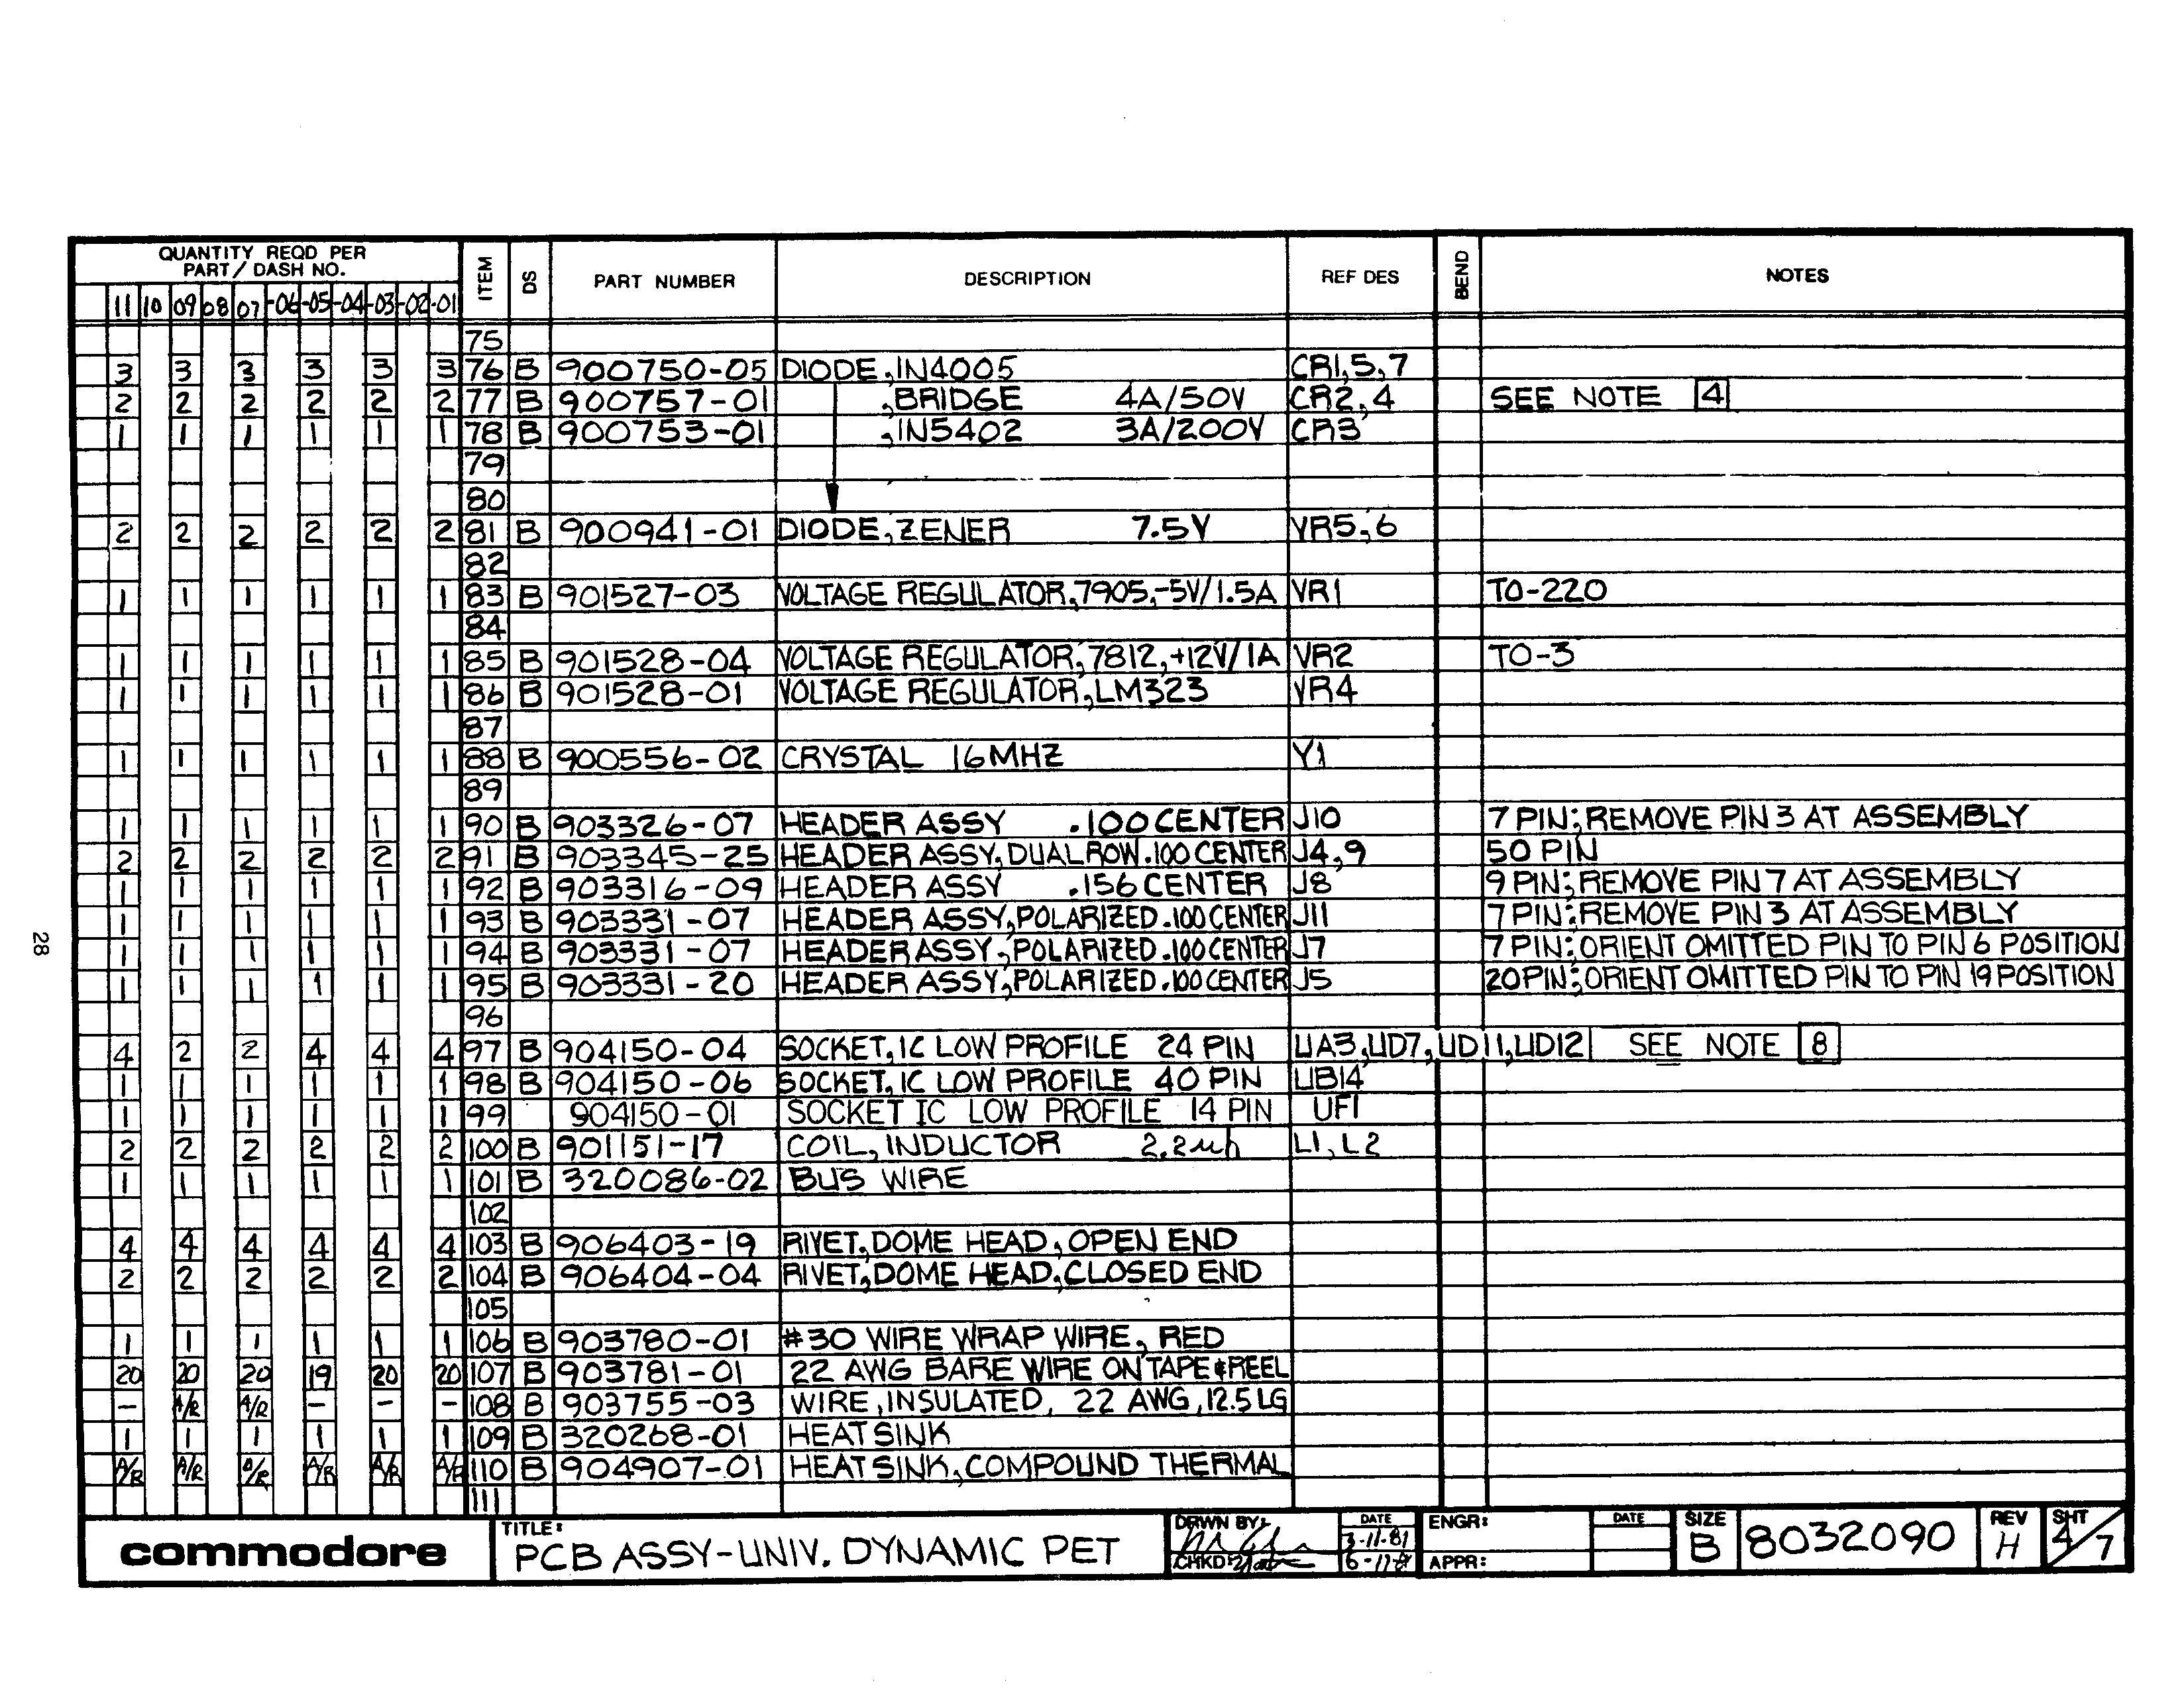 QUANTITY REQD PER
PART/DASH NO.
11 10 09 08 07 -06 -05 -04 -03 -02 -01 ITEM DS PART NUMBER DESCRIPTION REF DES BEND NOTES
75
3 3 3 3 3 3 76 B 900750-05 DIODE, IN4005 CR1,5,7
2 2 2 2 2 2 77 B 900757-01 ,BRIDGE 4A/50V CR2,4 SEE NOTE 4
1 1 1 1 1 1 78 B 900753-01 ,IN5402 3A/200V CR3
79
80
2 2 2 2 2 2 81 B 900941-01 DIODE, ZENER 7.5V VR5,6
82
1 1 1 1 1 1 83 B 901527-03 VOLTAGE REGULATOR,7905,-5V/1.5A VR1 TO-220
84
1 1 1 1 1 1 85 B 901528-04 VOLTAGE REGULATOR,7812,+12V/1A VR2 TO-3
1 1 1 1 1 1 86 B 901528-01 VOLTAGE REGULATOR,LM323 VR4
87
1 1 1 1 1 1 88 B 900556-02 CRYSTAL 16MHZ Y1
89
1 1 1 1 1 1 90 B 903326-07 HEADER ASSY .100 CENTER J10 7 PIN; REMOVE PIN 3 AT ASSEMBLY
2 2 2 2 2 2 91 B 903345-25 HEADER ASSY, DUAL ROW .100 CENTER J4,9 50 PIN
1 1 1 1 1 1 92 B 903316-09 HEADER ASSY .156 CENTER J8 9 PIN; REMOVE PIN 7 AT ASSEMBLY
1 1 1 1 1 1 93 B 903331-07 HEADER ASSY, POLARIZED .100 CENTER J11 7 PIN; REMOVE PIN 3 AT ASSEMBLY
1 1 1 1 1 1 94 B 903331-07 HEADER ASSY, POLARIZED .100 CENTER J7 7 PIN; ORIENT OMITTED PIN TO PIN 6 POSITION
1 1 1 1 1 1 95 B 903331-20 HEADER ASSY, POLARIZED .100 CENTER J5 20 PIN; ORIENT OMITTED PIN TO PIN 19 POSITION
96
4 2 2 4 4 4 97 B 904150-04 SOCKET, IC LOW PROFILE 24 PIN UA3,UD7,UD11,UD12 SEE NOTE 8
1 1 1 1 1 1 98 B 904150-06 SOCKET, IC LOW PROFILE 40 PIN UB14
1 1 1 1 1 1 99 904150-01 SOCKET IC LOW PROFILE 14 PIN UF1
2 2 2 2 2 2 100 B 901151-17 COIL, INDUCTOR 2.2uh L1, L2
1 1 1 1 1 1 101 B 320086-02 BUS WIRE
102
4 4 4 4 4 4 103 B 906403-19 RIVET, DOME HEAD, OPEN END
2 2 2 2 2 2 104 B 906404-04 RIVET, DOME HEAD, CLOSED END
105
1 1 1 1 1 1 106 B 903780-01 #30 WIRE WRAP WIRE, RED
20 20 20 19 20 20 107 B 903781-01 22 AWG BARE WIRE ON TAPE & REEL
- A/R A/R - - - 108 B 903755-03 WIRE, INSULATED, 22 AWG, 12.5 LG
1 1 1 1 1 1 109 B 320268-01 HEATSINK
A/R A/R A/R A/R A/R A/R 110 B 904907-01 HEATSINK, COMPOUND THERMAL
111
28
commodore
TITLE:
PCB ASSY-UNIV. DYNAMIC PET
DRWN BY:
DATE
3-11-81
CHKD
ENGR:
DATE
APPR:
SIZE
B
8032090
REV
H
SHT
4/7